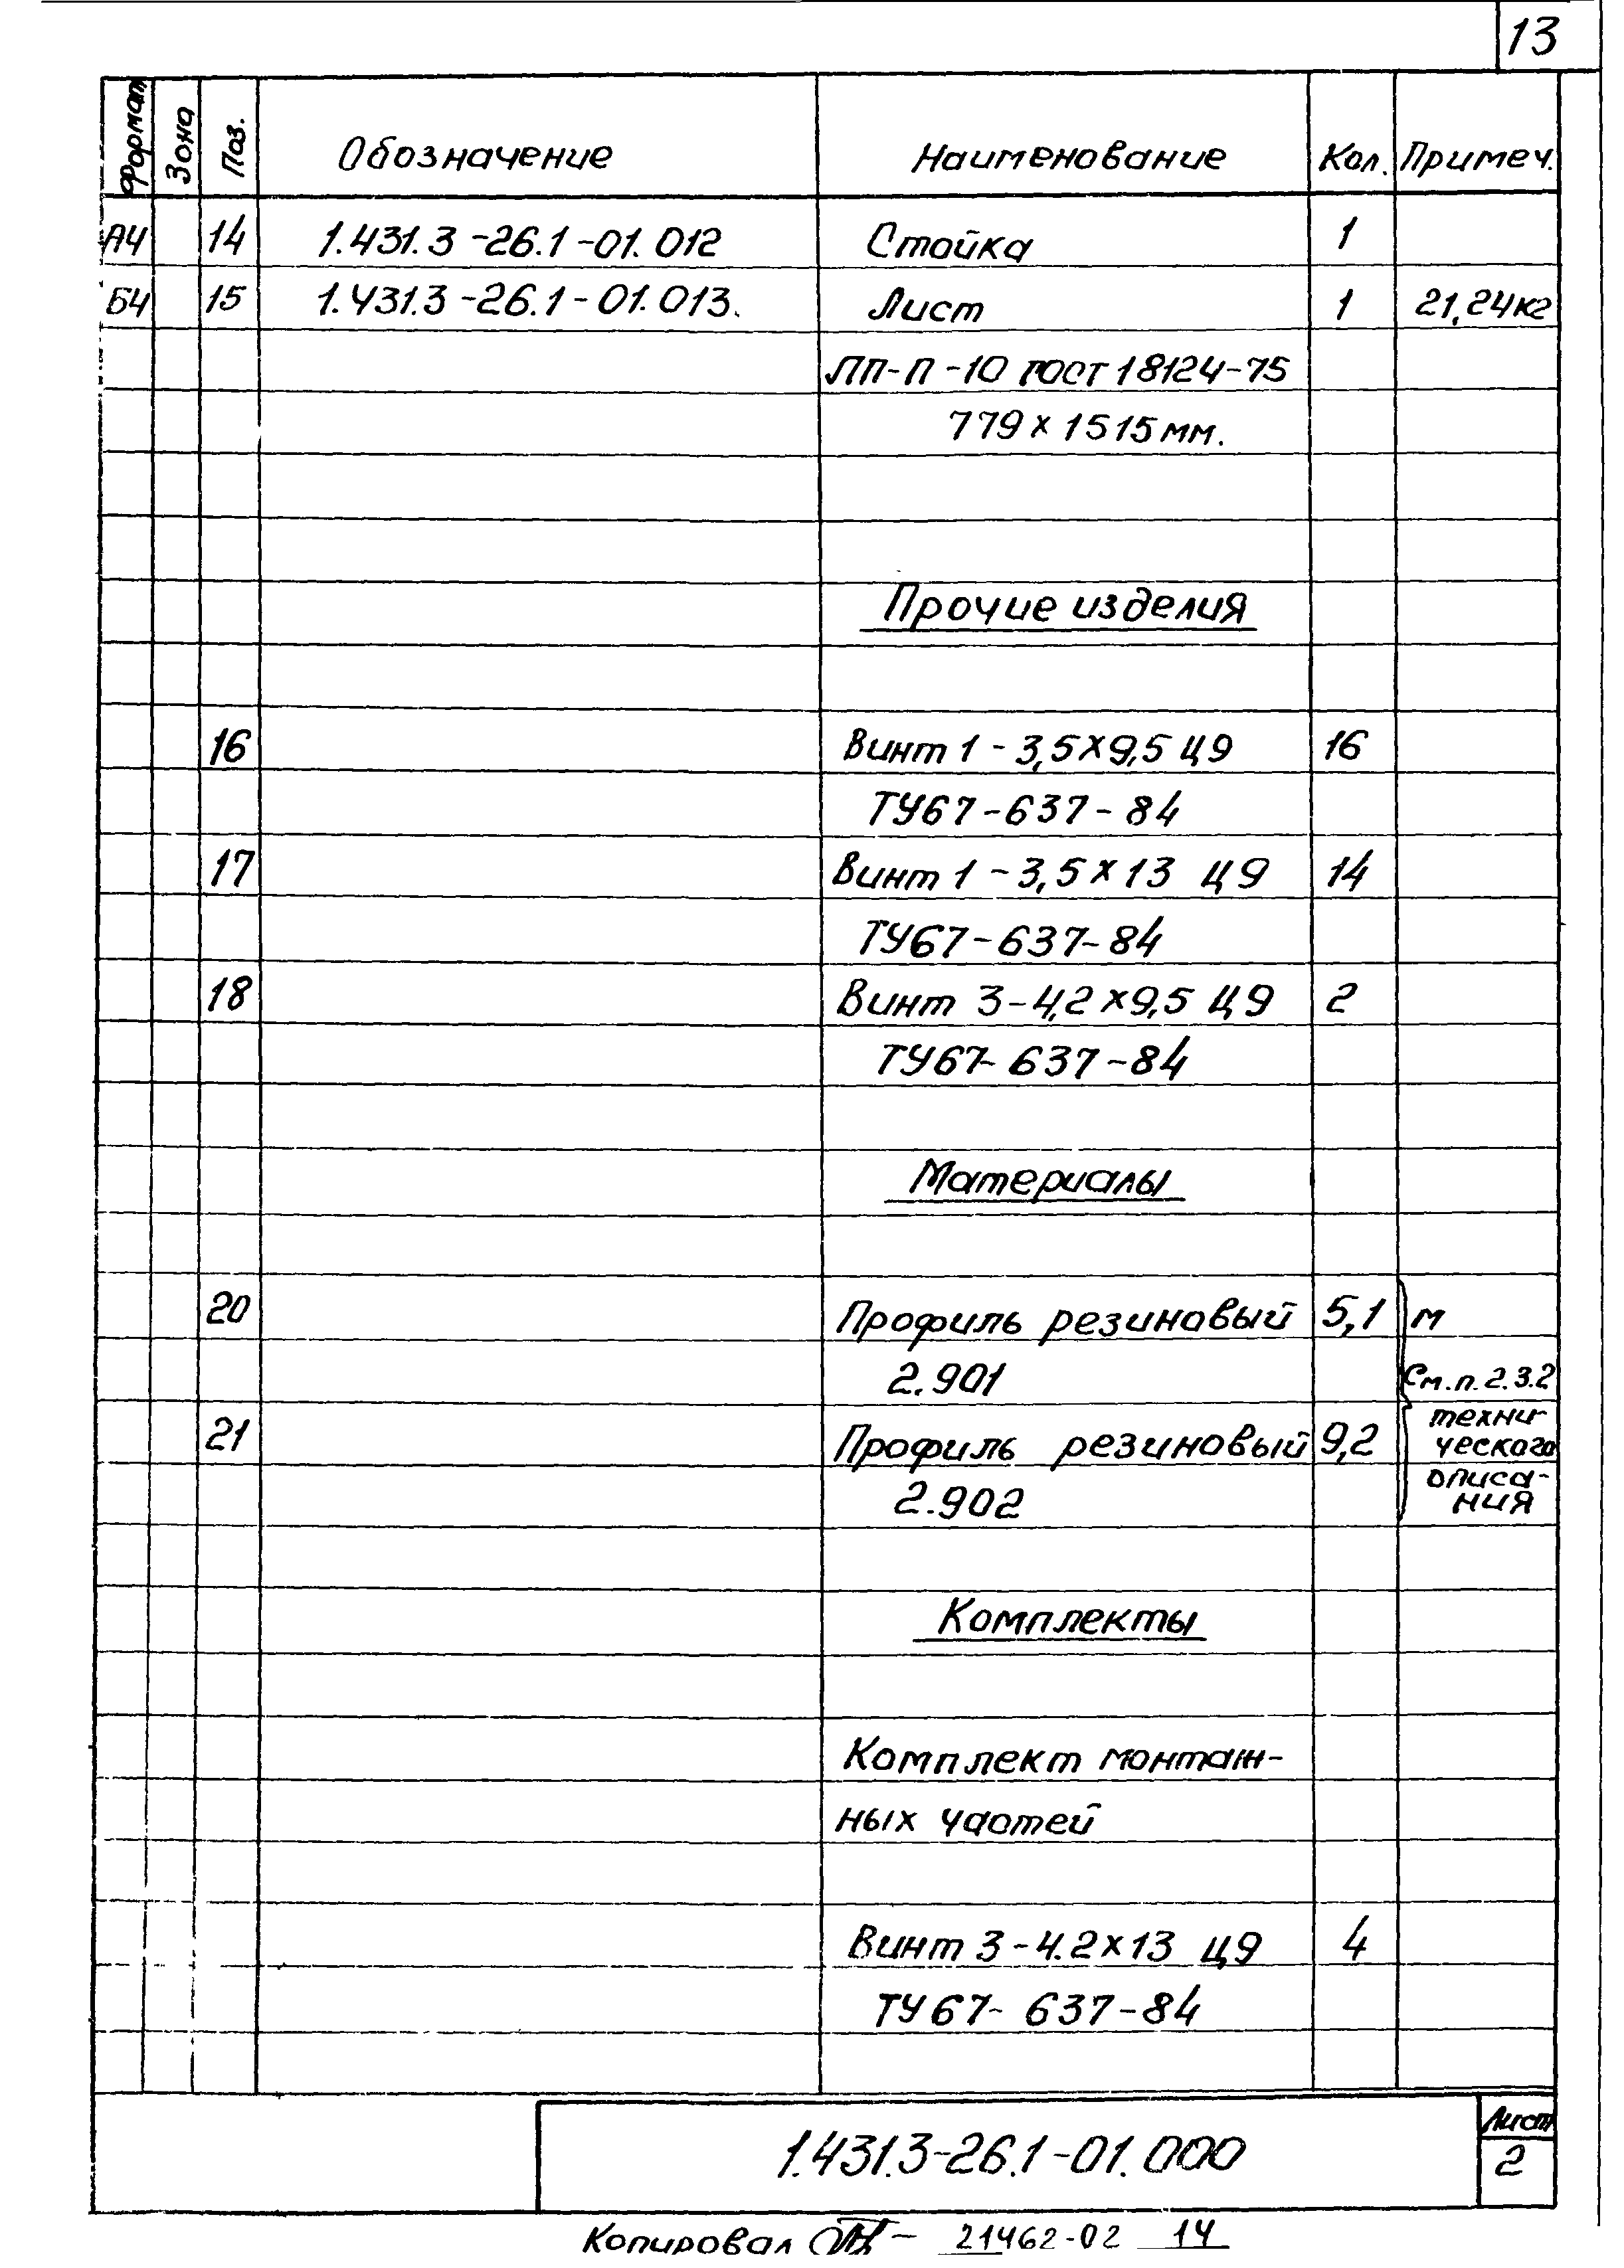 13
Формат Зона Поз. Обозначение Наименование Кол. Примеч.
А4 14 1.431.3-26.1-01.012 Стойка 1
Б4 15 1.431.3-26.1-01.013. Лист 1 21,24кг
ЛП-П-10 ГОСТ 18124-75
779 х 1515 мм.
Прочие изделия
16 Винт 1-3,5х9,5 Ц9 16
ТУ67-637-84
17 Винт 1-3,5х13 Ц9 14
ТУ67-637-84
18 Винт 3-4,2х9,5 Ц9 2
ТУ67-637-84
Материалы
20 Профиль резиновый 5,1 м
2.901 См.п.2.3.2
техни-
21 Профиль резиновый 9,2 ческого
описа-
2.902 ния
Комплекты
Комплект монтаж-
ных частей
Винт 3-4.2х13 Ц9 4
ТУ67-637-84
1.431.3-26.1-01.000 Лист
2
Копировал 21462-02 14